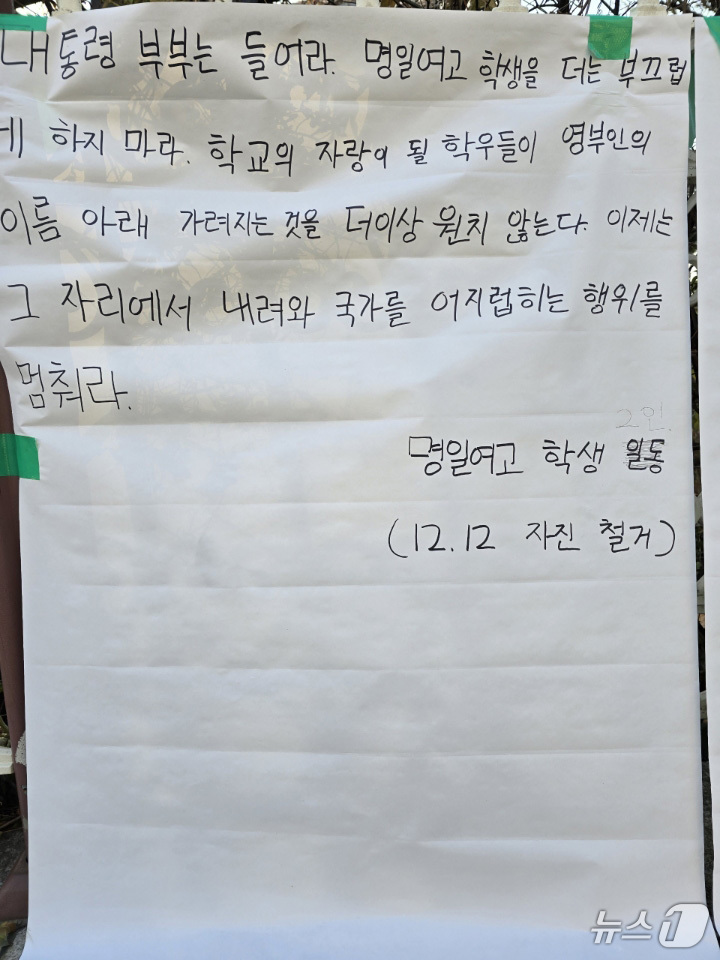 대통령 부부는 들어라. 명일여고 학생을 더는 부끄럽
게 하지 마라. 학교의 자랑이 될 학우들이 영부인의
이름 아래 가려지는 것을 더이상 원치 않는다. 이제는
그 자리에서 내려와 국가를 어지럽히는 행위를
멈춰라.
2인.
명일여고 학생 일동
(12.12 자진 철거)
뉴스1